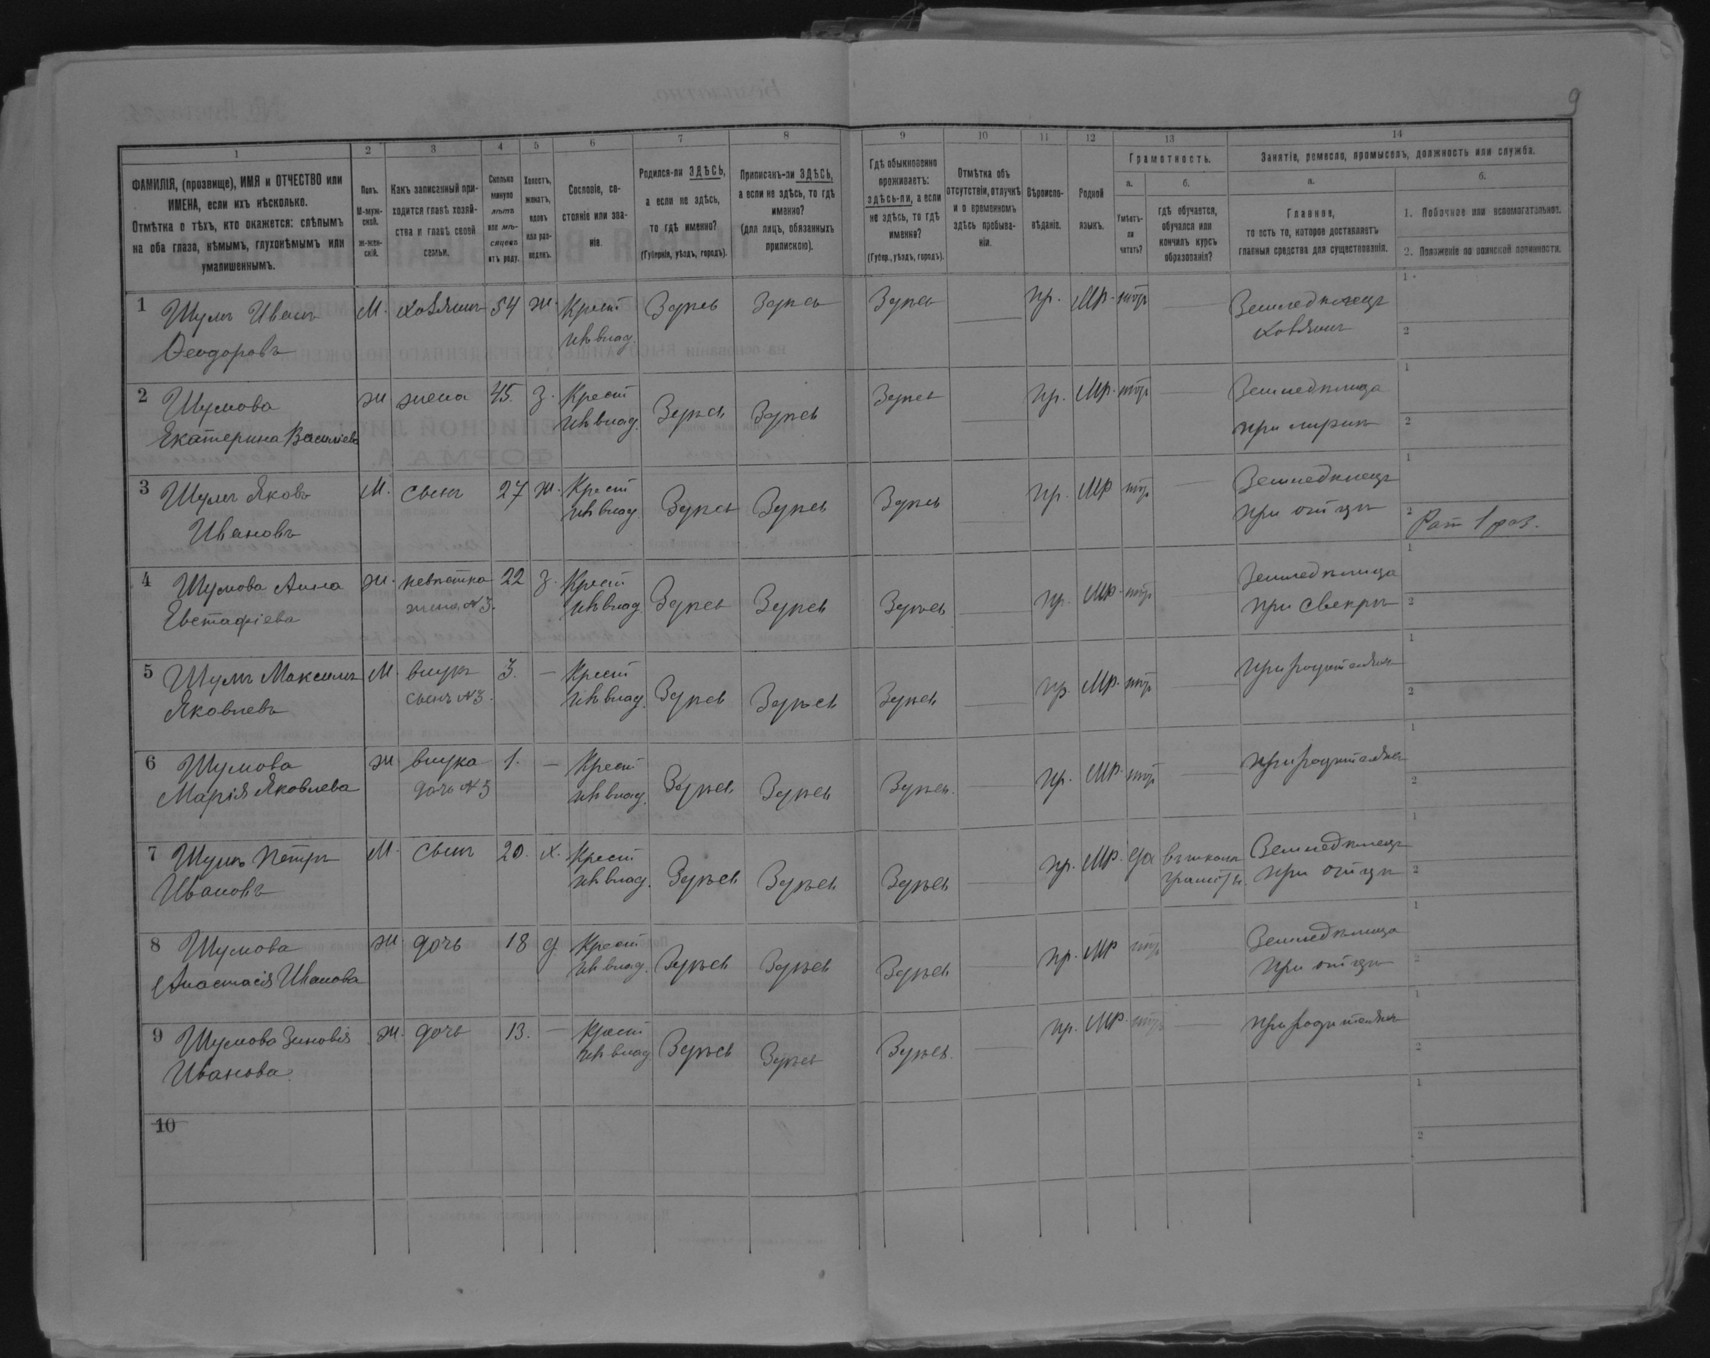 9
1 2 3 4 5 6 7 8 9 10 11 12 13 14
ФАМИЛІЯ, (прозвище), ИМЯ и ОТЧЕСТВО или
ИМЕНА, если ихъ нѣсколько.
Отмѣтка о тѣхъ, кто окажется: слѣпымъ
на оба глаза, нѣмымъ, глухонѣмымъ или
умалишеннымъ.
Полъ.
М-муж-
ской.
Ж-жен-
скій.
Какъ записанный при-
ходится главѣ хозяй-
ства и главѣ своей
семьи.
Сколько
минуло
лѣтъ
или мѣ-
сяцевъ
отъ роду.
Холостъ,
женатъ,
вдовъ
или раз-
веденъ.
Сословіе, со-
стояніе или зва-
ніе.
Родился-ли ЗДѢСЬ,
а если не здѣсь,
то гдѣ именно?
(Губернія, уѣздъ, городъ).
Приписанъ-ли ЗДѢСЬ,
а если не здѣсь, то гдѣ
именно?
(для лицъ, обязанныхъ
припискою).
Гдѣ обыкновенно
проживаетъ:
здѣсь-ли, а если
не здѣсь, то гдѣ
именно?
(Губер., уѣздъ, городъ).
Отмѣтка объ
отсутствіи, отлучкѣ
и о временномъ
здѣсь пребыва-
ніи.
Вѣроиспо-
вѣданіе.
Родной
языкъ.
Грамотность.
а.
Умѣетъ-
ли
читать?
б.
гдѣ обучается,
обучался или
кончилъ курсъ
образованія?
Занятіе, ремесло, промыселъ, должность или служба.
а.
Главное,
то есть то, которое доставляетъ
главныя средства для существованія.
б.
1. Побочное или вспомогательное.
2. Положеніе по воинской повинности.
1 Шумъ Иванъ М. хозяинъ 54 ж. Крест Здѣсь Здѣсь Здѣсь — пр. МР. нѣтъ — Земледѣлецъ 1
Ѳеодоровъ изъ влад. хозяинъ 2
2 Шумова ж жена 45. з. Крест Здѣсь Здѣсь Здѣсь — пр. МР. нѣтъ — Земледѣлица 1
Екатерина Василіева изъ влад. при мужѣ 2
3 Шумъ Яковъ М. сынъ 27 ж. Крест Здѣсь Здѣсь Здѣсь — пр. МР нѣтъ — Земледѣлецъ 1
Ивановъ изъ влад. при отцѣ 2 Рат 1 раз.
4 Шумова Анна ж. невѣстка 22 з. Крест Здѣсь Здѣсь Здѣсь — пр. МР. нѣтъ — Земледѣлица 1
Евстафіева жена №3. изъ влад. при свекрѣ 2
5 Шумъ Максимъ М. внукъ 3. — Крест Здѣсь Здѣсь Здѣсь — пр. МР. нѣтъ — при родителяхъ 1
Яковлевъ сынъ №3. изъ влад. 2
6 Шумова ж внука 1. — Крест Здѣсь Здѣсь Здѣсь. — пр. МР. нѣтъ — при родителяхъ 1
Марія Яковлева дочь №3 изъ влад. 2
7 Шумъ Петръ М. сынъ 20. х. Крест Здѣсь Здѣсь Здѣсь — пр. МР. да въ школѣ Земледѣлецъ 1
Ивановъ изъ влад. грамоты при отцѣ 2
8 Шумова ж дочь 18 д. Крест Здѣсь Здѣсь Здѣсь — пр. МР нѣтъ — Земледѣлица 1
Анастасія Иванова изъ влад. при отцѣ 2
9 Шумова Зиновія ж. дочь 13. — Крест Здѣсь Здѣсь Здѣсь. — пр. МР нѣтъ — при родителяхъ 1
Иванова. изъ влад. 2
10 1
2